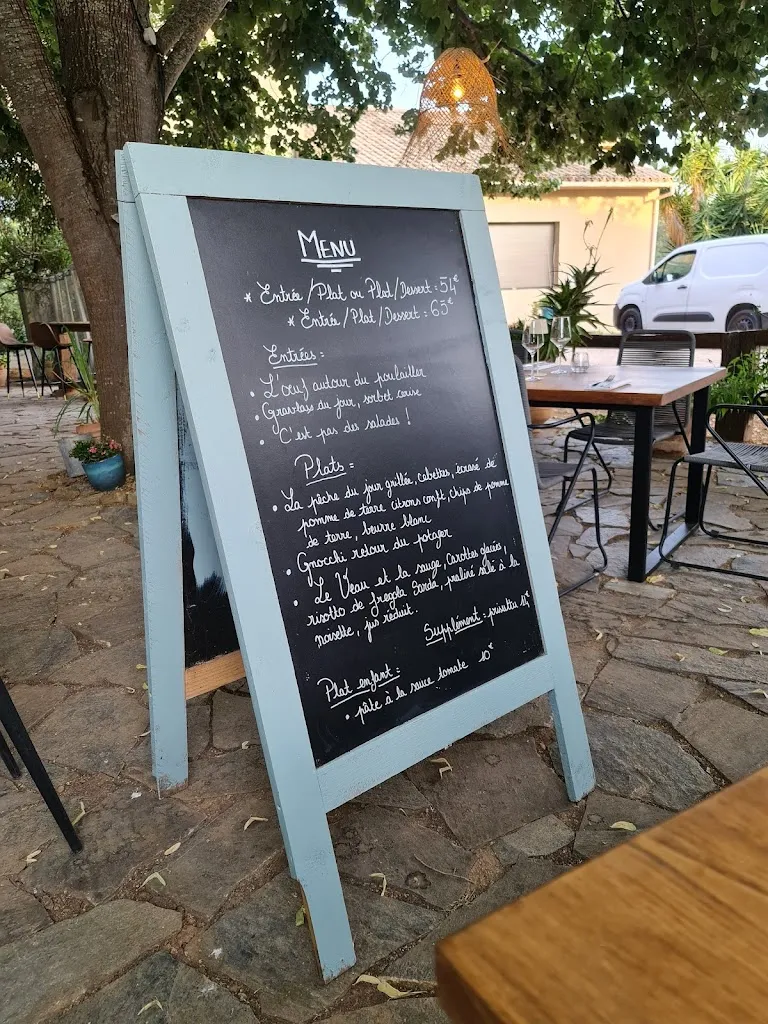 MENU
* Entrée/Plat ou Plat/Dessert = 54€
* Entrée/Plat/Dessert = 65€
Entrées =
• L'œuf autour du poulailler
• Gravlax du jour, sorbet cerise
• C'est pas des salades !
Plats =
• La pêche du jour grillée, cebettes, écrasé de
pomme de terre citrons confit, chips de pomme
de terre, beurre blanc
• Gnocchi retour du potager
• Le Veau et la sauge, carottes glacées,
risotto de fregola Sarda, praliné salé à la
noisette, jus réduit.
Supplément =
Plat enfant =
• pâte à la sauce tomate 10€